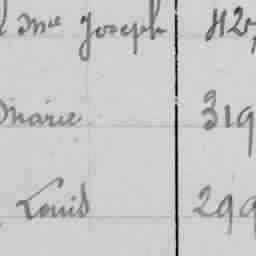 Mie Joseph 425
Marie 319
Louis 299